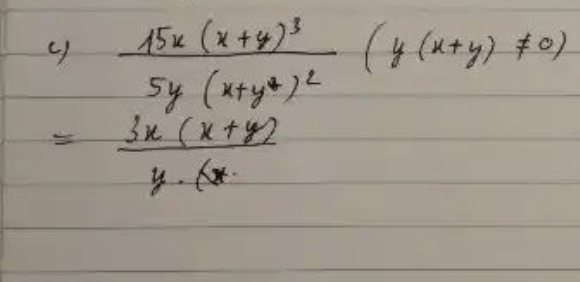 c) 15x (x+y)³ / 5y (x+y)² ( y (x+y) ≠ 0)
= 3x (x+y) / y . (x.